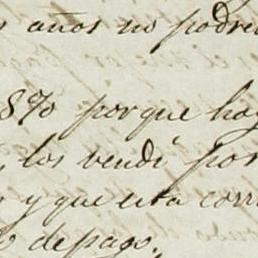 años no podre
870 porque hoy
los vendí por
y que esta corr
de pago.